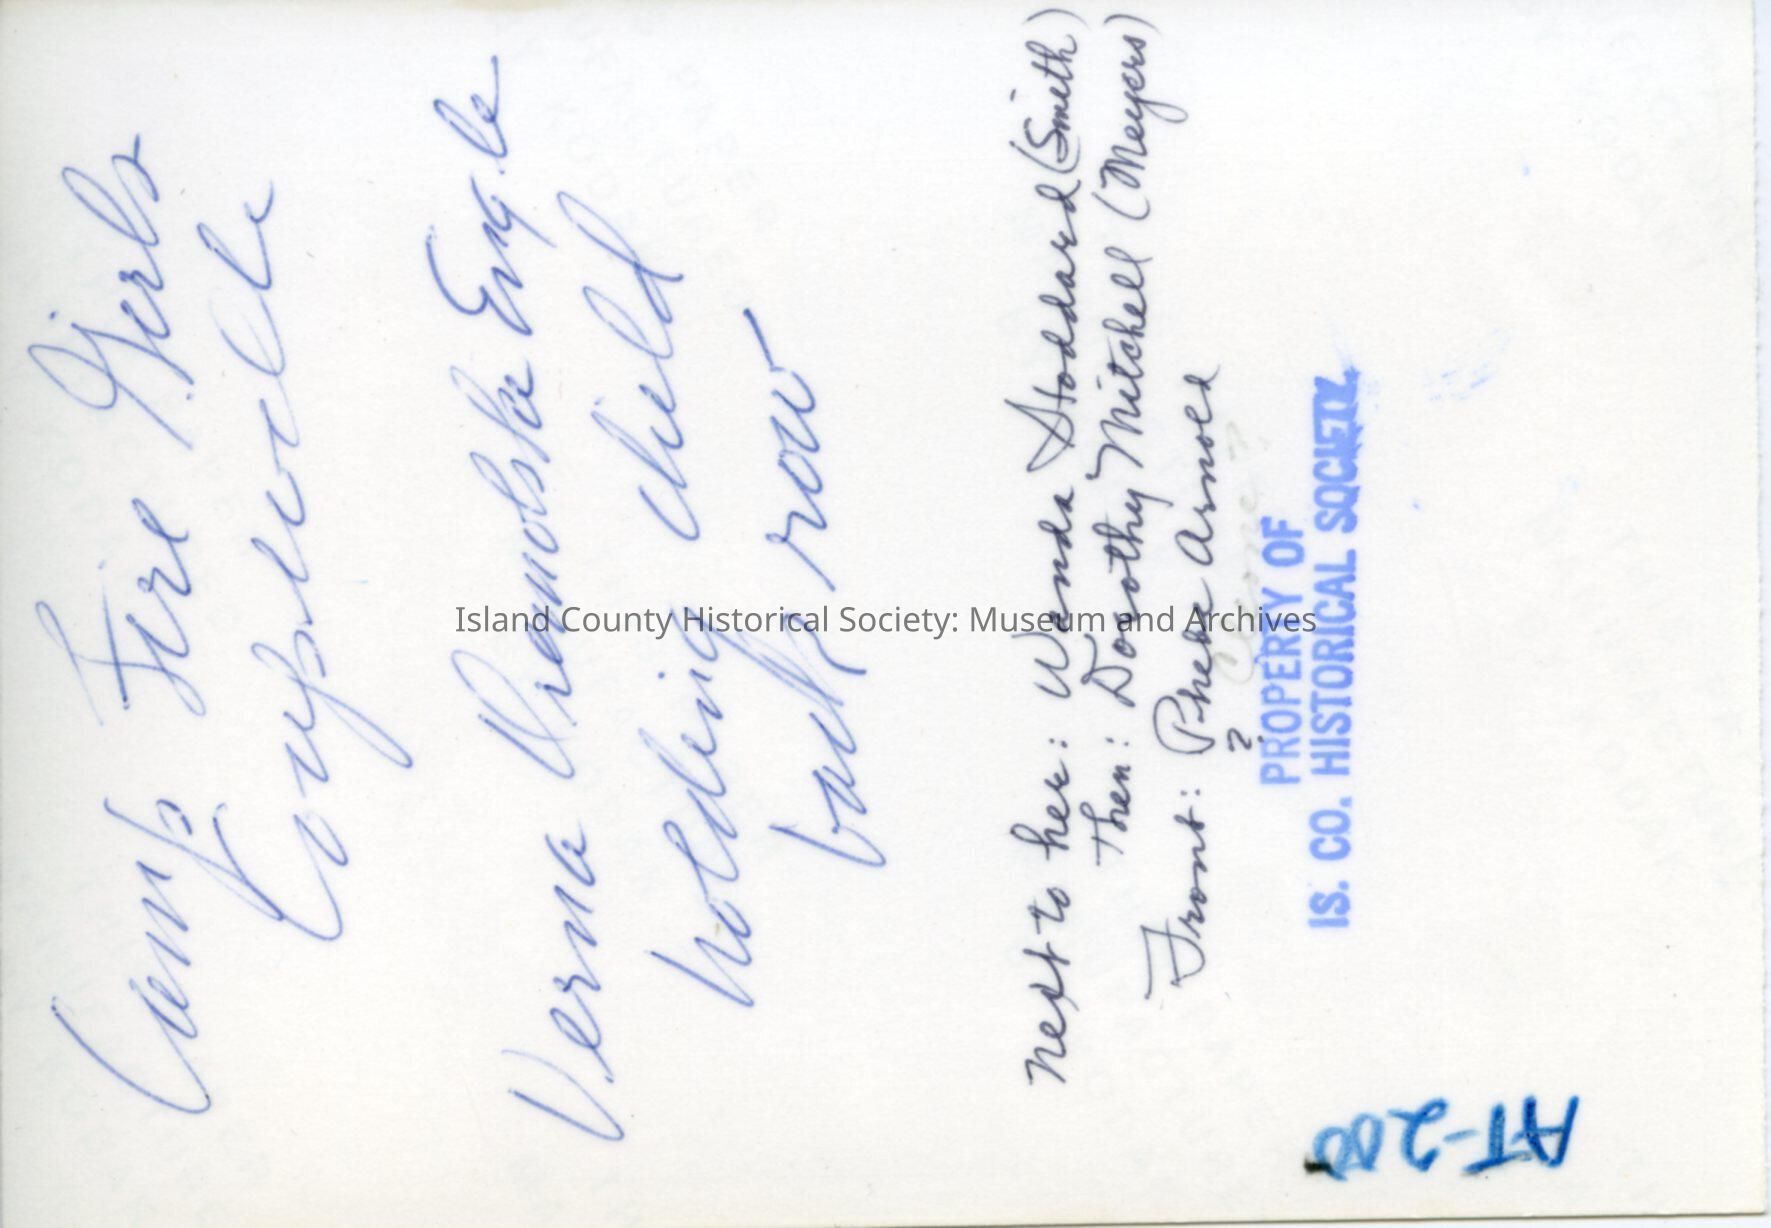 Camp Fire Girls
Coupeville
Verna Engle
holding child
back row
Next to her: Wanda Stoddard (Smith)
Then: Dorothy Mitchell (Meyers)
Front: Phebe Arnold
?
PROPERTY OF
IS. CO. HISTORICAL SOCIETY.
AT-200
Island County Historical Society: Museum and Archives